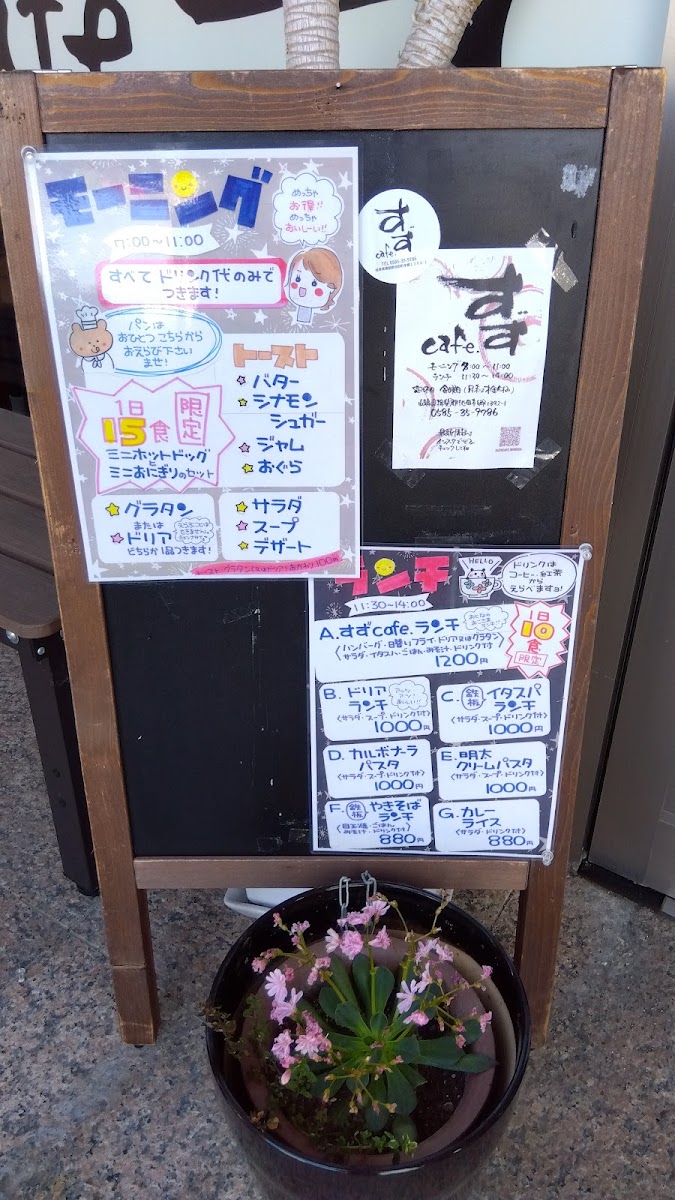 モーニング
めっちゃ
お得!!
めっちゃ
おいしーい!!
7:00〜11:00
すべて ドリンク代のみで
つきます!
パンは
おひとつこちらから
おえらび下さい
ませ!
トースト
バター
シナモン
シュガー
ジャム
おぐら
1日
15食
限定
ミニホットドッグ
と
ミニおにぎりのセット
グラタン
または
ドリア
どちらか1品つきます!
サラダ
スープ
デザート
すず
cafe.
すず
cafe.
モーニング 7:00〜11:00
ランチ 11:30〜14:00
0585-35-9786
ランチ
11:30〜14:00
HELLO
ドリンクは
コーヒー・紅茶
から
えらべますョ!
A.すずcafe.ランチ
〈ハンバーグ・日替りフライ・ドリア又はグラタン
サラダ・イタスパ・ごはん・みそ汁・ドリンク付〉
1200円
1日
10食
限定
B. ドリア
ランチ
〈サラダ・スープ・ドリンク付〉
1000円
C. 鉄板 イタスパ
ランチ
〈サラダ・スープ・ドリンク付〉
1000円
D. カルボナーラ
パスタ
〈サラダ・スープ・ドリンク付〉
1000円
E. 明太
クリームパスタ
〈サラダ・スープ・ドリンク付〉
1000円
F. 鉄板 やきそば
ランチ
〈目玉焼・ごはん
みそ汁・ドリンク付〉
880円
G. カレー
ライス
〈サラダ・ドリンク付〉
880円